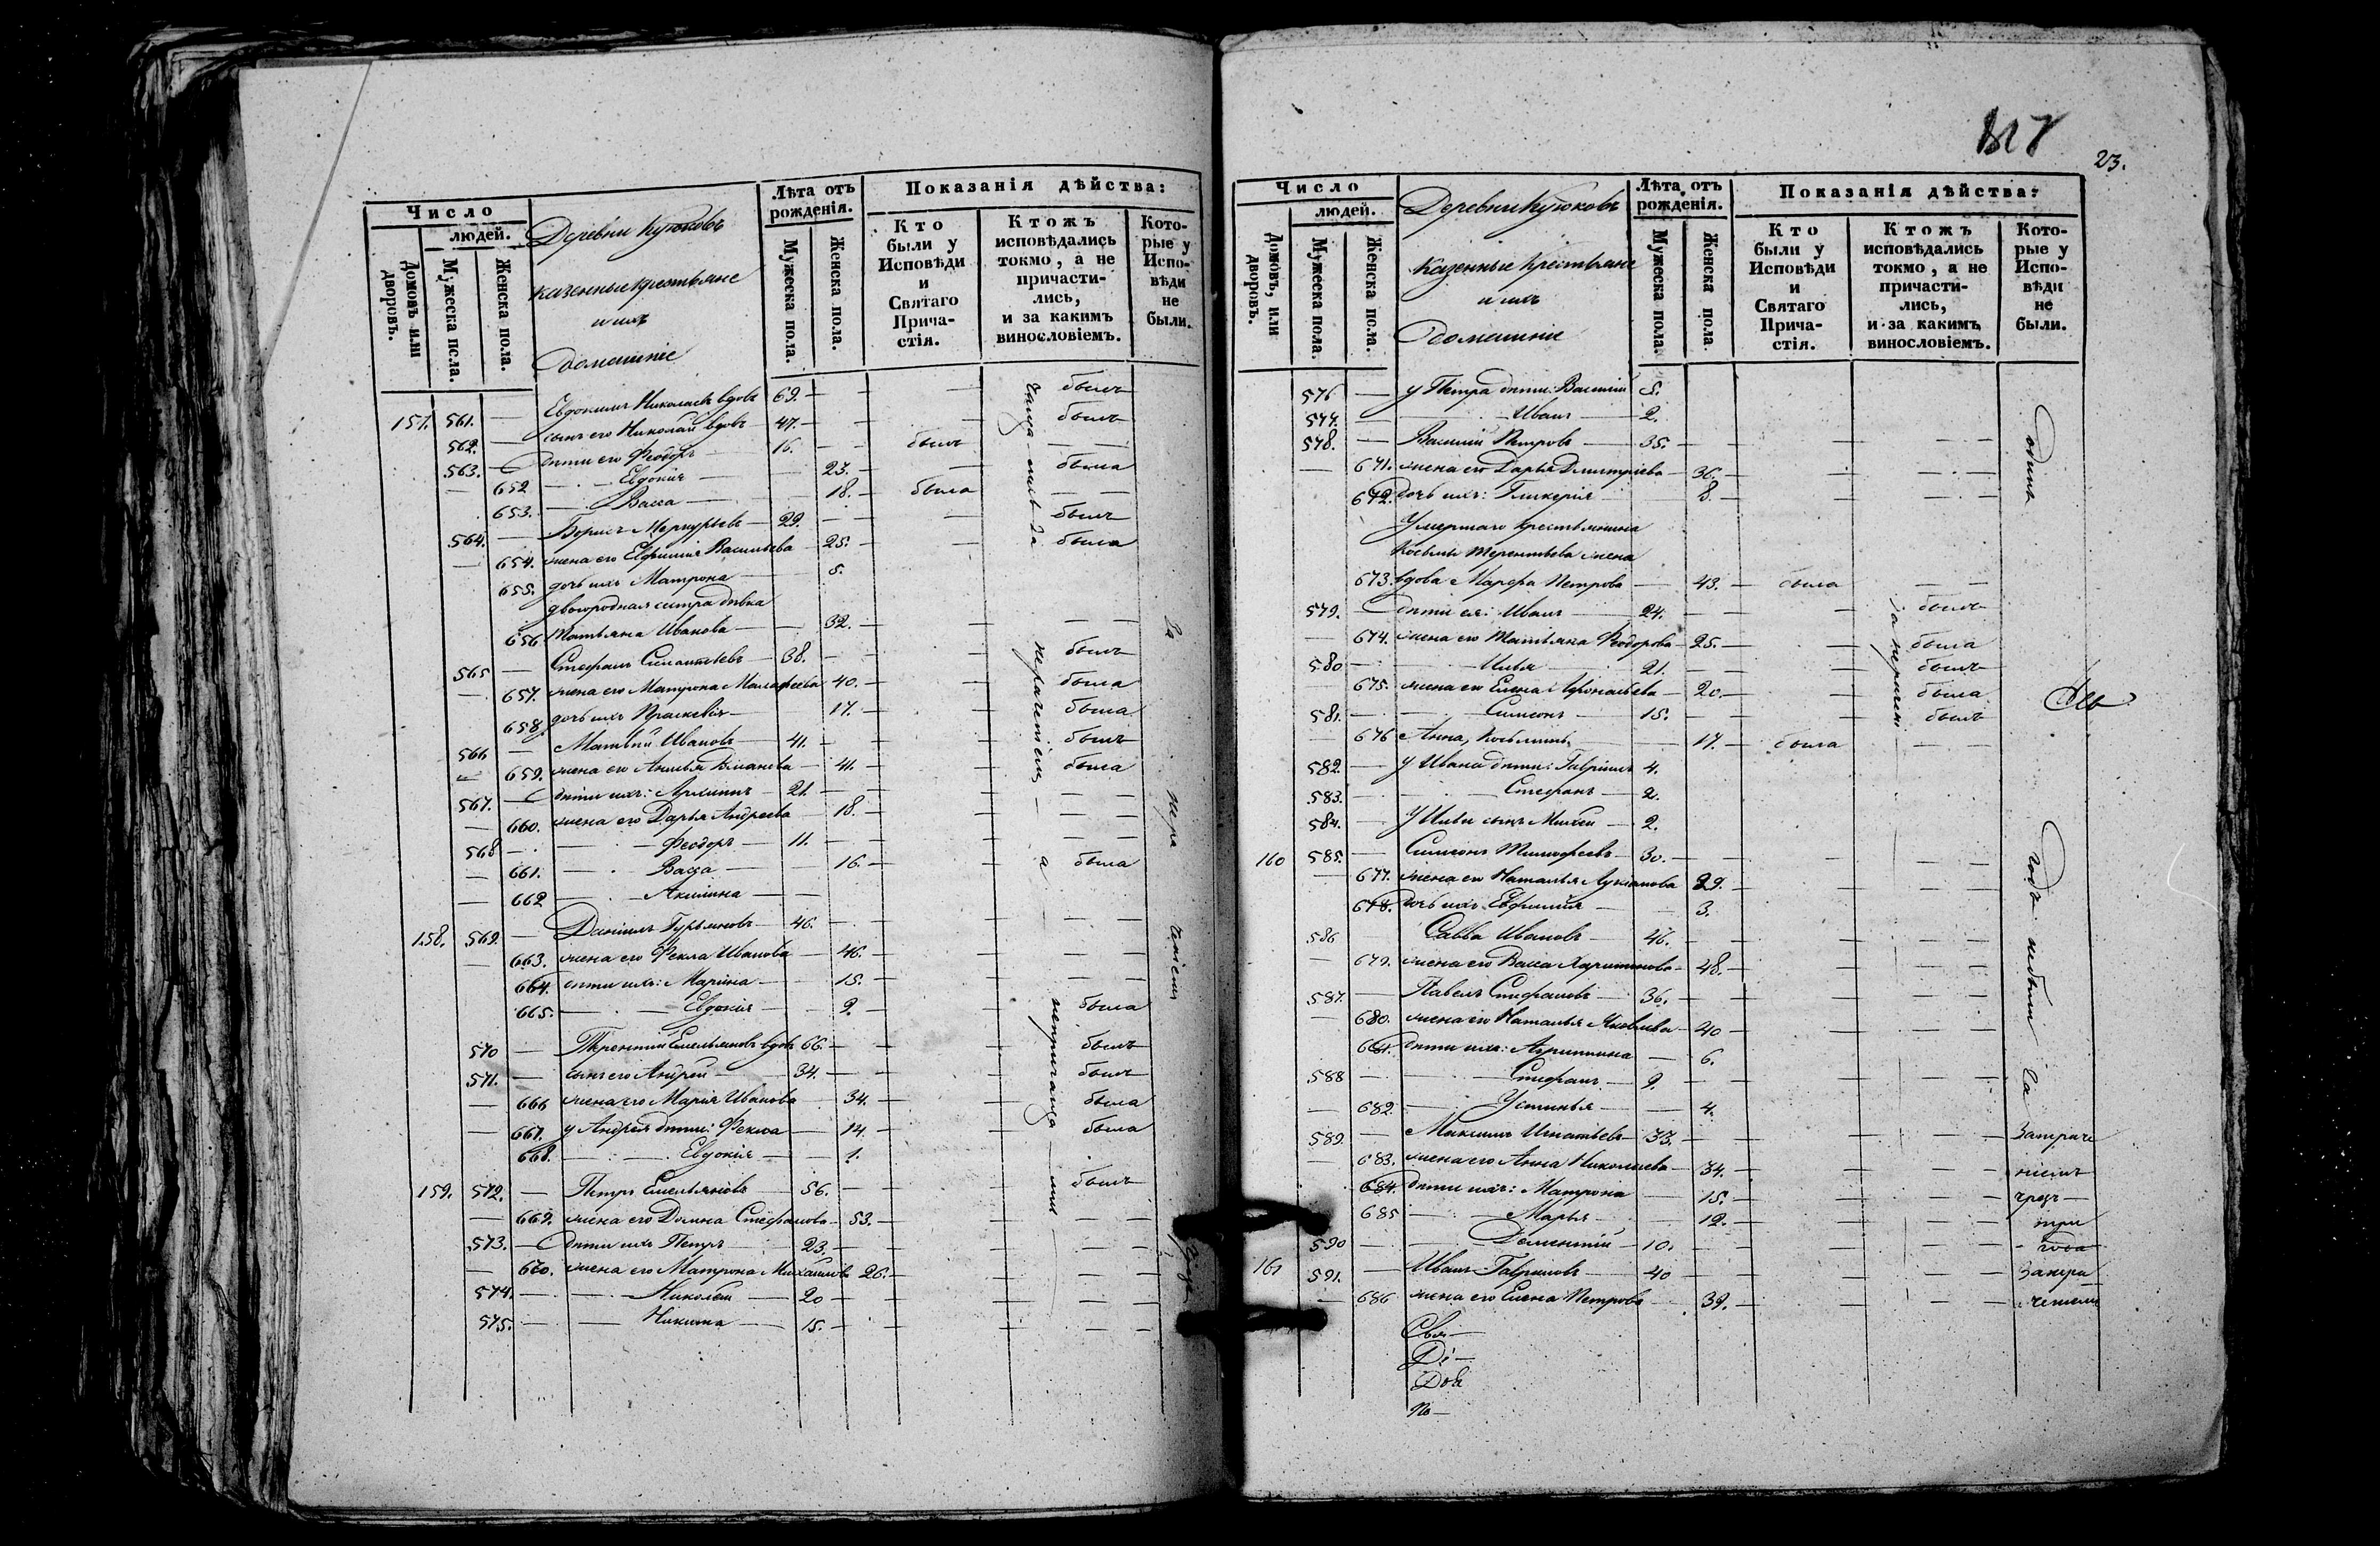 Число
людей.
Домовъ или дворовъ.
Мужеска пола.
Женска пола.
Деревни Кутюковъ
казенные крестьяне
и ихъ
домашніе
Лѣта отъ рожденія.
Мужеска пола.
Женска пола.
Показанія дѣйства:
Кто были у Исповѣди и Святаго Причастія.
Ктожъ исповѣдались токмо, а не причастились, и за какимъ винословіемъ.
Которые у Исповѣди не были.
157. 561. — Евдокимъ Николаевъ вдовъ 69. — — — былъ
562. — сынъ его Николай вдовъ 47. — — — былъ
563. — дѣти его Феодоръ 16. — былъ — —
— 652 — Евдокія — 23. — — была
653. — Васса — 18. — была — —
564. — Борисъ Меркурьевъ — 29. — — — былъ
— 654. жена его Евфимія Васильева — 25. — — была
655. дочь ихъ Матрона — 5.
двоюродная сестра дѣвка
656 Татьяна Иванова — 32. — — — —
565 — Стефанъ — 38. — — — былъ
— 657. жена его Матрона Малафеева 40. — — была
658. дочь ихъ Праскевія — 17. — — была
566 — Матвѣй Ивановъ — 41. — — — былъ
— 659. жена его — 41. — — была
567. — дѣти ихъ: — 21. — — — — —
— 660. жена его Дарья Андреева 18. — — — —
568 — — Феодоръ — 11. — — — — —
— 661. — Васса — 16. — — была
— 662 — Акилина — —
158. 569. — Даніилъ Гурьяновъ — 46. — — — — —
— 663. жена его Фекла Иванова — 46. — — — —
664. дѣти ихъ: Марина — 15. — — — —
665. — Евдокія — 9. — — была
570 — Терентій Емельяновъ вдовъ 66. — — — былъ
571. — сынъ его Андрей — 34. — — — былъ
— 666 жена его Марія Иванова 34. — — была
— 667. у Андрея дѣти: Фекла — 14. — — была
668. — Евдокія — 1.
159. 572. — Петръ Емельяновъ — 56. — — — былъ
— 669. жена его Домна Стефанова — 53. — — — —
573. — дѣти ихъ Петръ — 23. — — — — —
— 670. жена его Матрона Михайлова 26. — — — —
574. — — Николай — 20 — — — — —
575. — — Никита — 15. — — — — —
за нераченіемъ
23.
Число
людей.
Домовъ, или дворовъ.
Мужеска пола.
Женска пола.
Деревни Кутюковъ
казенные крестьяне
и ихъ
домашніе
Лѣта отъ рожденія.
Мужеска пола.
Женска пола.
Показанія дѣйства:
Кто были у Исповѣди и Святаго Причастія.
Ктожъ исповѣдались токмо, а не причастились, и за какимъ винословіемъ.
Которые у Исповѣди не были.
576 — у Петра дѣти: Василій 5.
577. — — Иванъ — 2.
578. — Василій Петровъ — 35. — — — —
— 671. жена его Дарья Дмитріева — 36. — — — —
672. дочь ихъ: Гликерія — 8. — — — —
Умершаго крестьянина
Косьмы Терентьева жена
673. вдова Марфа Петрова — 43. — была — —
579. — дѣти ея: Иванъ — 24. — — былъ
— 674. жена его Татьяна Феодорова — 25. — — была
580 — — Илья — 21. — — былъ
675. жена его Елена — 20. — — была
581. — — Симеонъ — 15. — — былъ
676 Анна, — 17. — была — —
582. — у Ивана дѣти: Гавріилъ 4.
583. — — Стефанъ — 2.
584. — у Ильи сынъ Михей — 2.
160 585. — Симеонъ Тимофеевъ — 30. — — — —
— 677. жена его Наталья Лукіанова 29. — — — —
678. дочь ихъ Евфимія — 3. — — — —
586 Савва Ивановъ — 46. — — — —
— 679. жена его Васса Харитонова — 48. — — — —
587. — Павелъ Стефановъ — 36. — — — —
— 680. жена его Наталья Яковлева — 40 — — — —
681. дѣти ихъ: Агриппина — 6. — — — —
588 — — Стефанъ — 9. — — — —
— 682. — Устинья — 4. — — — —
589. — Максимъ Игнатьевъ — 33. — — — — занераче
— 683. жена его Анна Николаева — 34. — — — — ніемъ
684. дѣти ихъ: Матрона — 15. — — — — чрезъ —
685 — — Марья — 12. — — — — три
590 — — Дометій — 10. — — — — года
161 591. — Иванъ Гавриловъ — 40 — — — — занера
— 686 жена его Елена Петрова — 39. — — — — ченіемъ
одинъ
годъ небыли за
Свя—
Dі—
Dов
По—